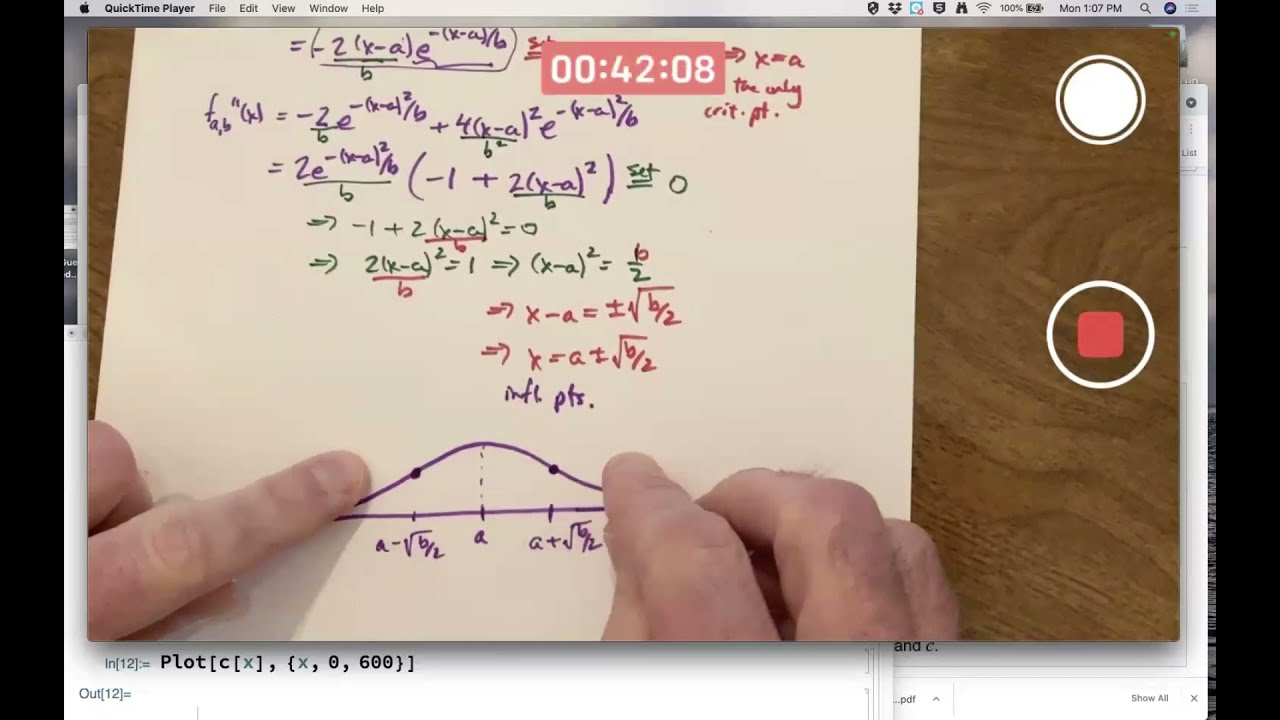 QuickTime Player File Edit View Window Help 100% Mon 1:07 PM
= (-2(x-a)/b e^-(x-a)²/b) set
00:42:08
⇒ x=a
the only
crit. pt.
f_a,b''(x) = -2/b e^-(x-a)²/b + 4(x-a)²/b² e^-(x-a)²/b
= 2e^-(x-a)²/b / b (-1 + 2(x-a)²/b) set = 0
⇒ -1 + 2(x-a)²/b = 0
⇒ 2(x-a)²/b = 1 ⇒ (x-a)² = b/2
⇒ x-a = ±√b/2
⇒ x = a ± √b/2
infl. pts.
a-√b/2 a a+√b/2
List
In[12]:= Plot[c[x], {x, 0, 600}]
Out[12]=
and c.
..pdf Show All